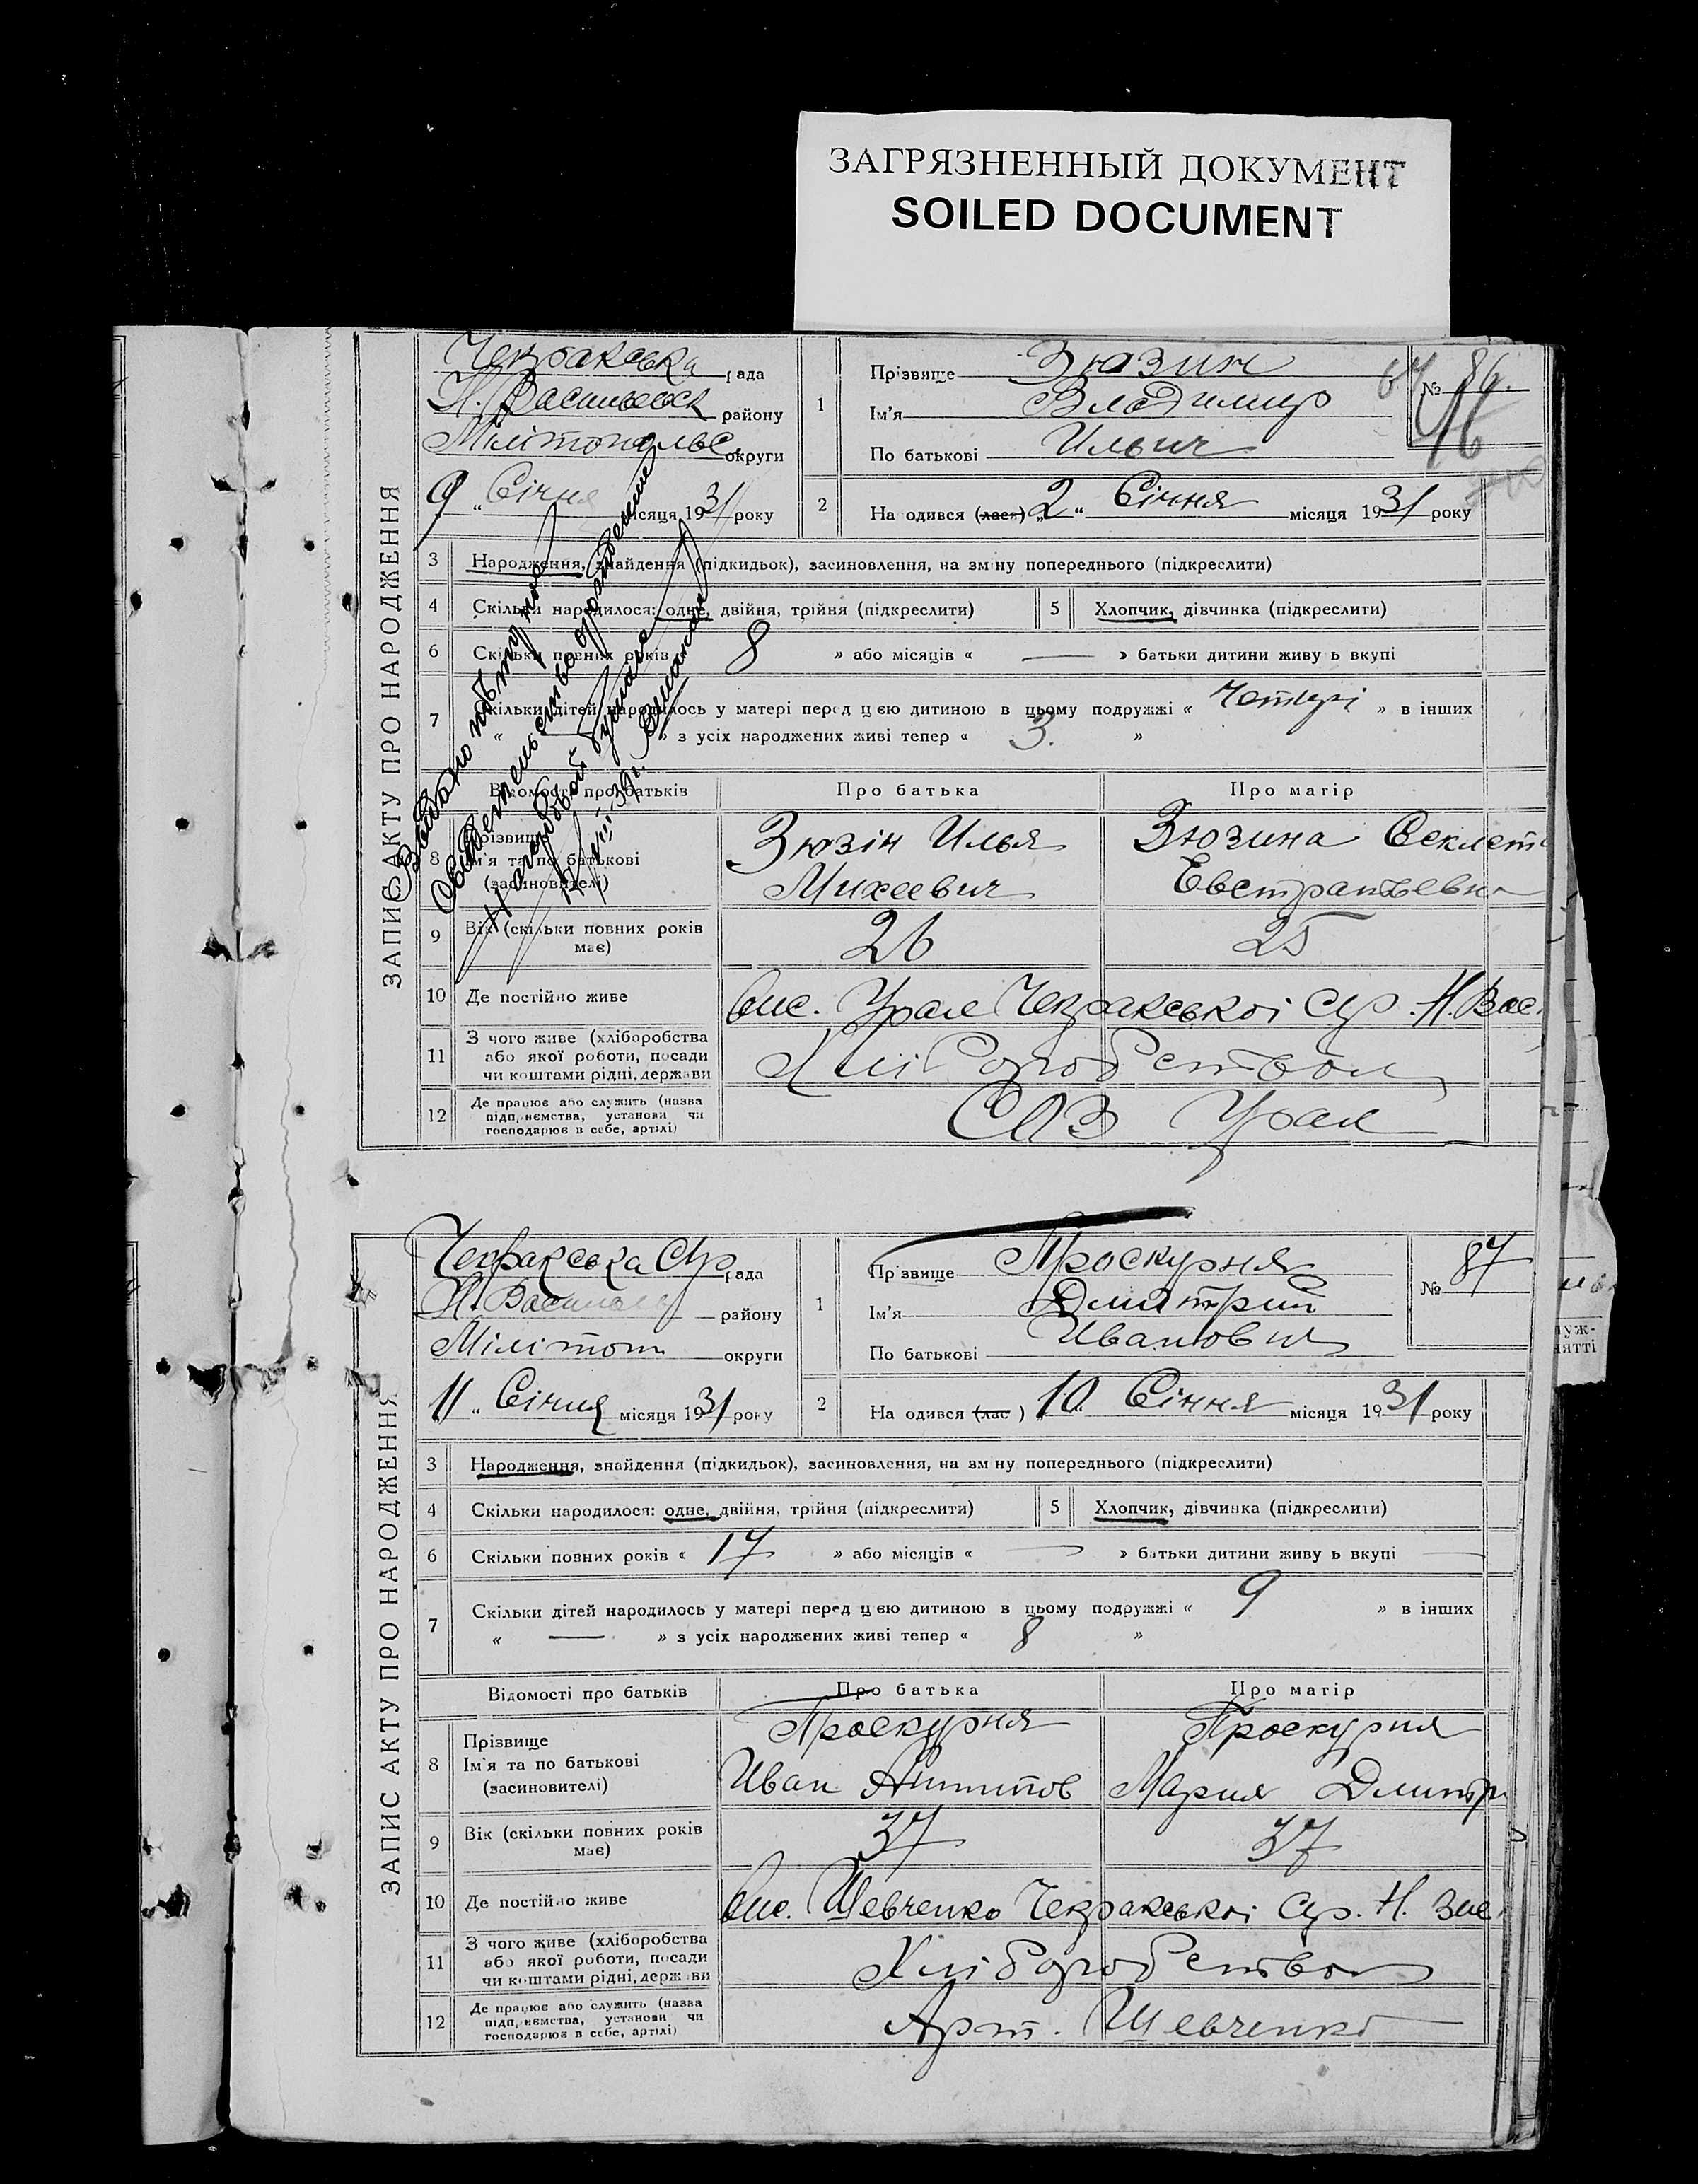 ЗАГРЯЗНЕННЫЙ ДОКУМЕНТ
SOILED DOCUMENT
ЗАПИС АКТУ ПРО НАРОДЖЕННЯ
Чехракська рада
Н. Васильевск району
Мілітопольс округи
9 „ Січня місяця 1931 року
1
Прізвище Зюзин
Ім'я Владимир
По батькові Ильич
№ 86.
2
На одився (лася) „2 “ Січня місяця 1931 року
3 Народження, знайдення (підкидьок), засиновлення, на зміну попереднього (підкреслити)
4 Скільки народилося: одне, двійня, трійня (підкреслити) 5 Хлопчик, дівчинка (підкреслити)
6 Скільки повних років « 8 » або місяців « — » батьки дитини живу ь вкупі
7 Скільки дітей народилось у матері перед цією дитиною в цьому подружжі « Четирі » в інших
« » з усіх народжених живі тепер « 3. »
Відомості про батьків Про батька Про матір
8 Прізвище
Ім'я та по батькові
(засиновителі)
Зюзін Илья
Михеевич
Зюзина Секлет
Евстратьевна
9 Вік (скільки повних років має) 26 25
10 Де постійно живе вис. Урал Чехракської с/р. Н. Вас.
11 З чого живе (хліборобства
або якої роботи, посади
чи коштами рідні, держави
Хліборобством
12 Де працює або служить (назва
підприємства, установи чи
господарює в себе, артілі)
СОЗ Урал
Свидетельство о рождении
ЗАПИС АКТУ ПРО НАРОДЖЕННЯ
Чехракська С/р рада
Н. Василь району
Мілітоп округи
11 „ Січня місяця 1931 року
1
Прізвище Проскурня
Ім'я Дмитрий
По батькові Иванович
№ 87
2
На одився (лас ) 10. Січня місяця 1931 року
3 Народження, знайдення (підкидьок), засиновлення, на зміну попереднього (підкреслити)
4 Скільки народилося: одне, двійня, трійня (підкреслити) 5 Хлопчик, дівчинка (підкреслити)
6 Скільки повних років « 17 » або місяців « — » батьки дитини живу ь вкупі
7 Скільки дітей народилось у матері перед цією дитиною в цьому подружжі « 9 » в інших
« — » з усіх народжених живі тепер « 8 »
Відомості про батьків Про батька Про матір
8 Прізвище
Ім'я та по батькові
(засиновителі)
Проскурня
Иван Антипов
Проскурня
Мария Дмитр
9 Вік (скільки повних років має) 37 37
10 Де постійно живе вис. Шевченко Чехракської с/р. Н. Вас.
11 З чого живе (хліборобства
або якої роботи, посади
чи коштами рідні, держави
Хліборобством
12 Де працює або служить (назва
підприємства, установи чи
господарює в себе, артілі)
Арт. Шевченко